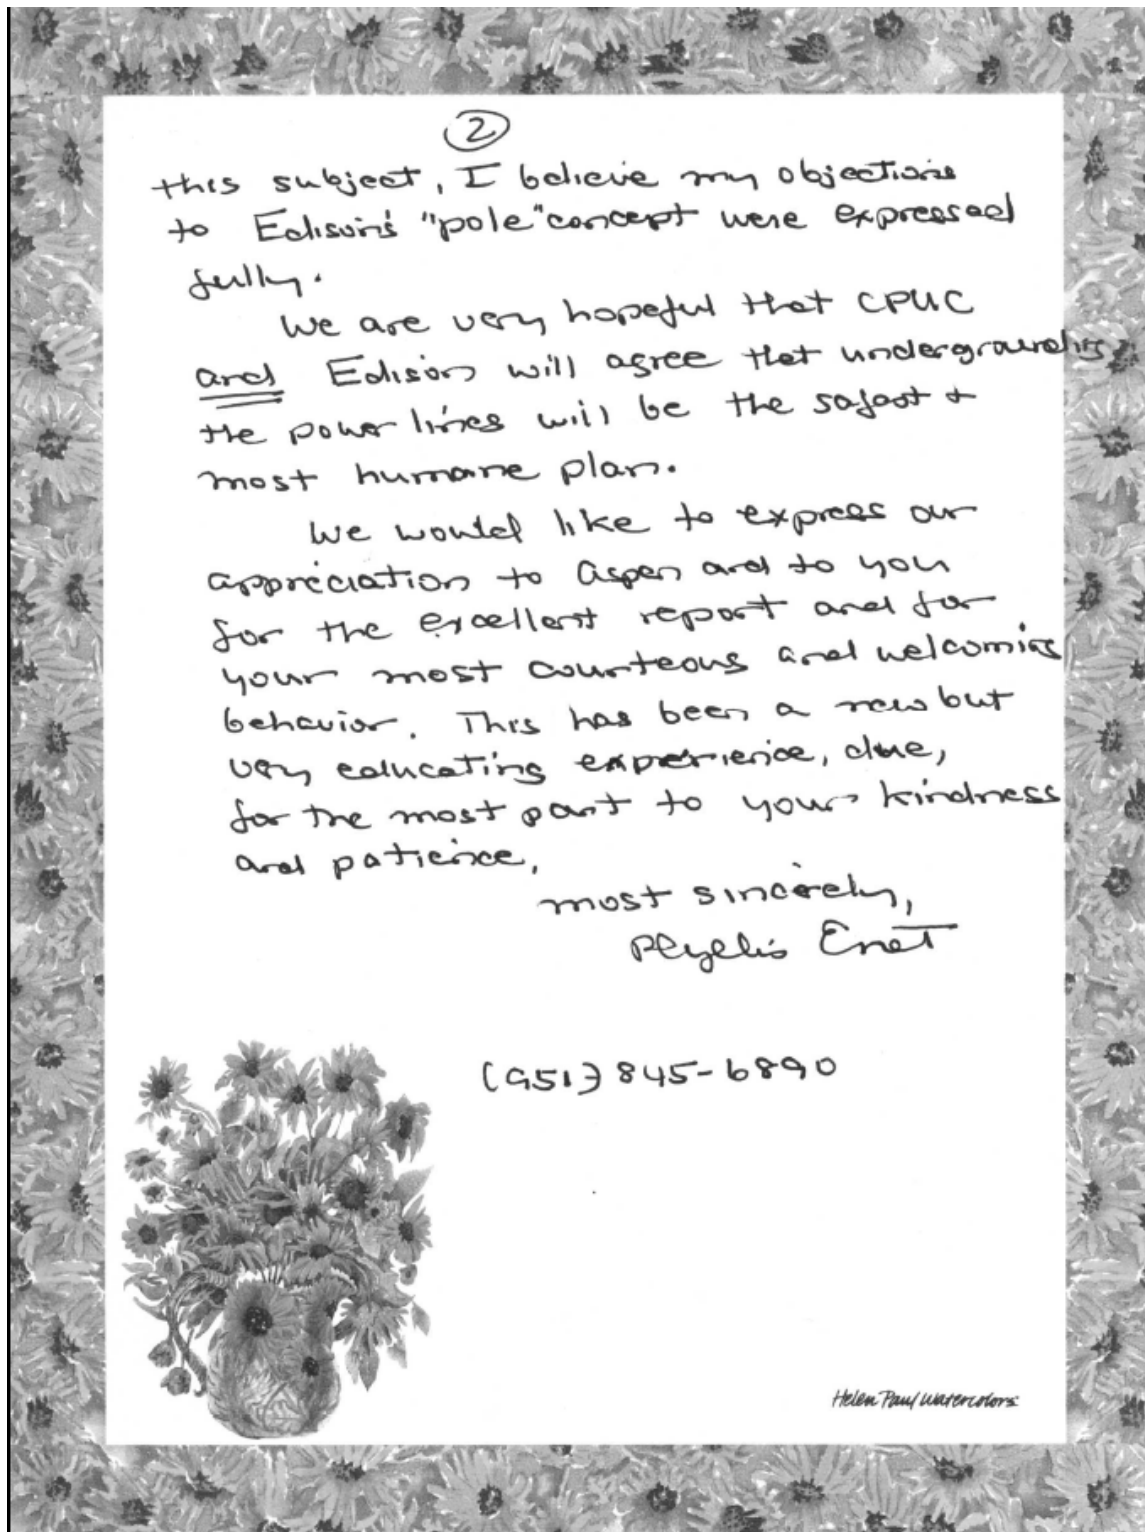 2
this subject, I believe my objections
to Edison's "pole" concept were expressed
fully.
We are very hopeful that CPUC
and Edison will agree that undergrounding
the power lines will be the safest +
most humane plan.
We would like to express our
appreciation to Aspen and to you
for the excellent report and for
your most courteous and welcoming
behavior. This has been a new but
very educating experience, due,
for the most part to your kindness
and patience.
most sincerely,
Phyllis
(951) 845-6890
Helen Paul Watercolors